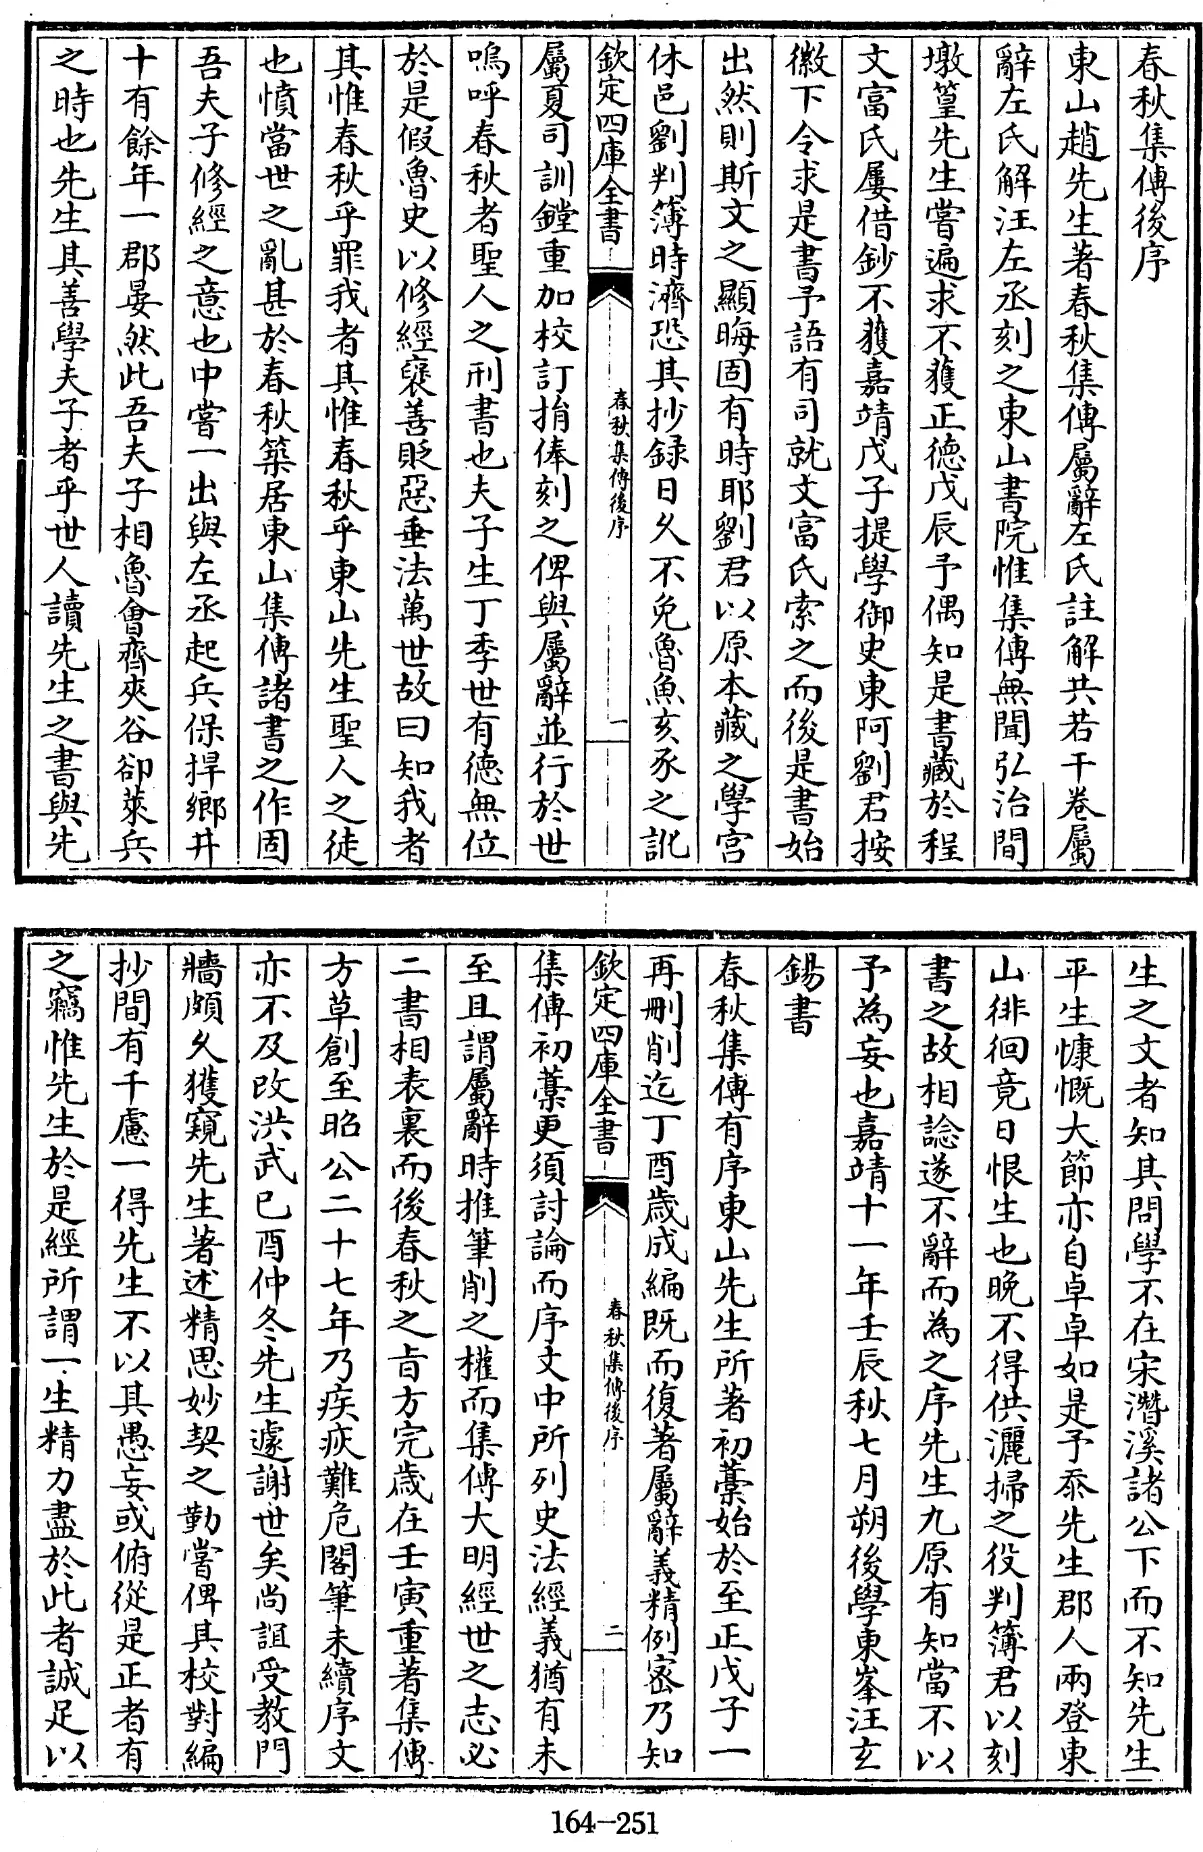 春秋集傳後序
東山趙先生著春秋集傳屬辭左氏註解共若干卷屬
辭左氏解汪左丞刻之東山書院惟集傳無聞弘治間
墩篁先生嘗遍求不獲正德戊辰予偶知是書藏於程
文富氏屢借鈔不獲嘉靖戊子提學御史東阿劉君按
徽下令求是書予語有司就文富氏索之而後是書始
出然則斯文之顯晦固有時耶劉君以原本藏之學宮
休邑劉判簿時濟恐其抄録日久不免魯魚亥豕之訛
欽定四庫全書
春秋集傳後序
一
屬夏司訓鏜重加校訂捐俸刻之俾與屬辭並行於世
嗚呼春秋者聖人之刑書也夫子生丁季世有德無位
於是假魯史以修經襃善貶惡垂法萬世故曰知我者
其惟春秋乎罪我者其惟春秋乎東山先生聖人之徒
也憤當世之亂甚於春秋築居東山集傳諸書之作固
吾夫子修經之意也中嘗一出與左丞起兵保捍鄉井
十有餘年一郡晏然此吾夫子相魯會齊夾谷卻萊兵
之時也先生其善學夫子者乎世人讀先生之書與先
生之文者知其問學不在宋潛溪諸公下而不知先生
平生慷慨大節亦自卓卓如是予忝先生郡人兩登東
山徘徊竟日恨生也晚不得供灑掃之役判簿君以刻
書之故相諗遂不辭而為之序先生九原有知當不以
予為妄也嘉靖十一年壬辰秋七月朔後學東峯汪玄
錫書
春秋集傳有序東山先生所著初藁始於至正戊子一
再刪削迄丁酉歲成編既而復著屬辭義精例密乃知
欽定四庫全書
春秋集傳後序
二
集傳初藁更須討論而序文中所列史法經義猶有未
至且謂屬辭時推筆削之權而集傳大明經世之志必
二書相表裏而後春秋之㫖方完歲在壬寅重著集傳
方草創至昭公二十七年乃疾疢難危閣筆未續序文
亦不及改洪武已酉仲冬先生遽謝世矣尚誼受教門
牆頗久獲窺先生著述精思妙契之勤嘗俾其校對編
抄間有千慮一得先生不以其愚妄或俯從是正者有
之竊惟先生於是經所謂一生精力盡於此者誠足以
164-251